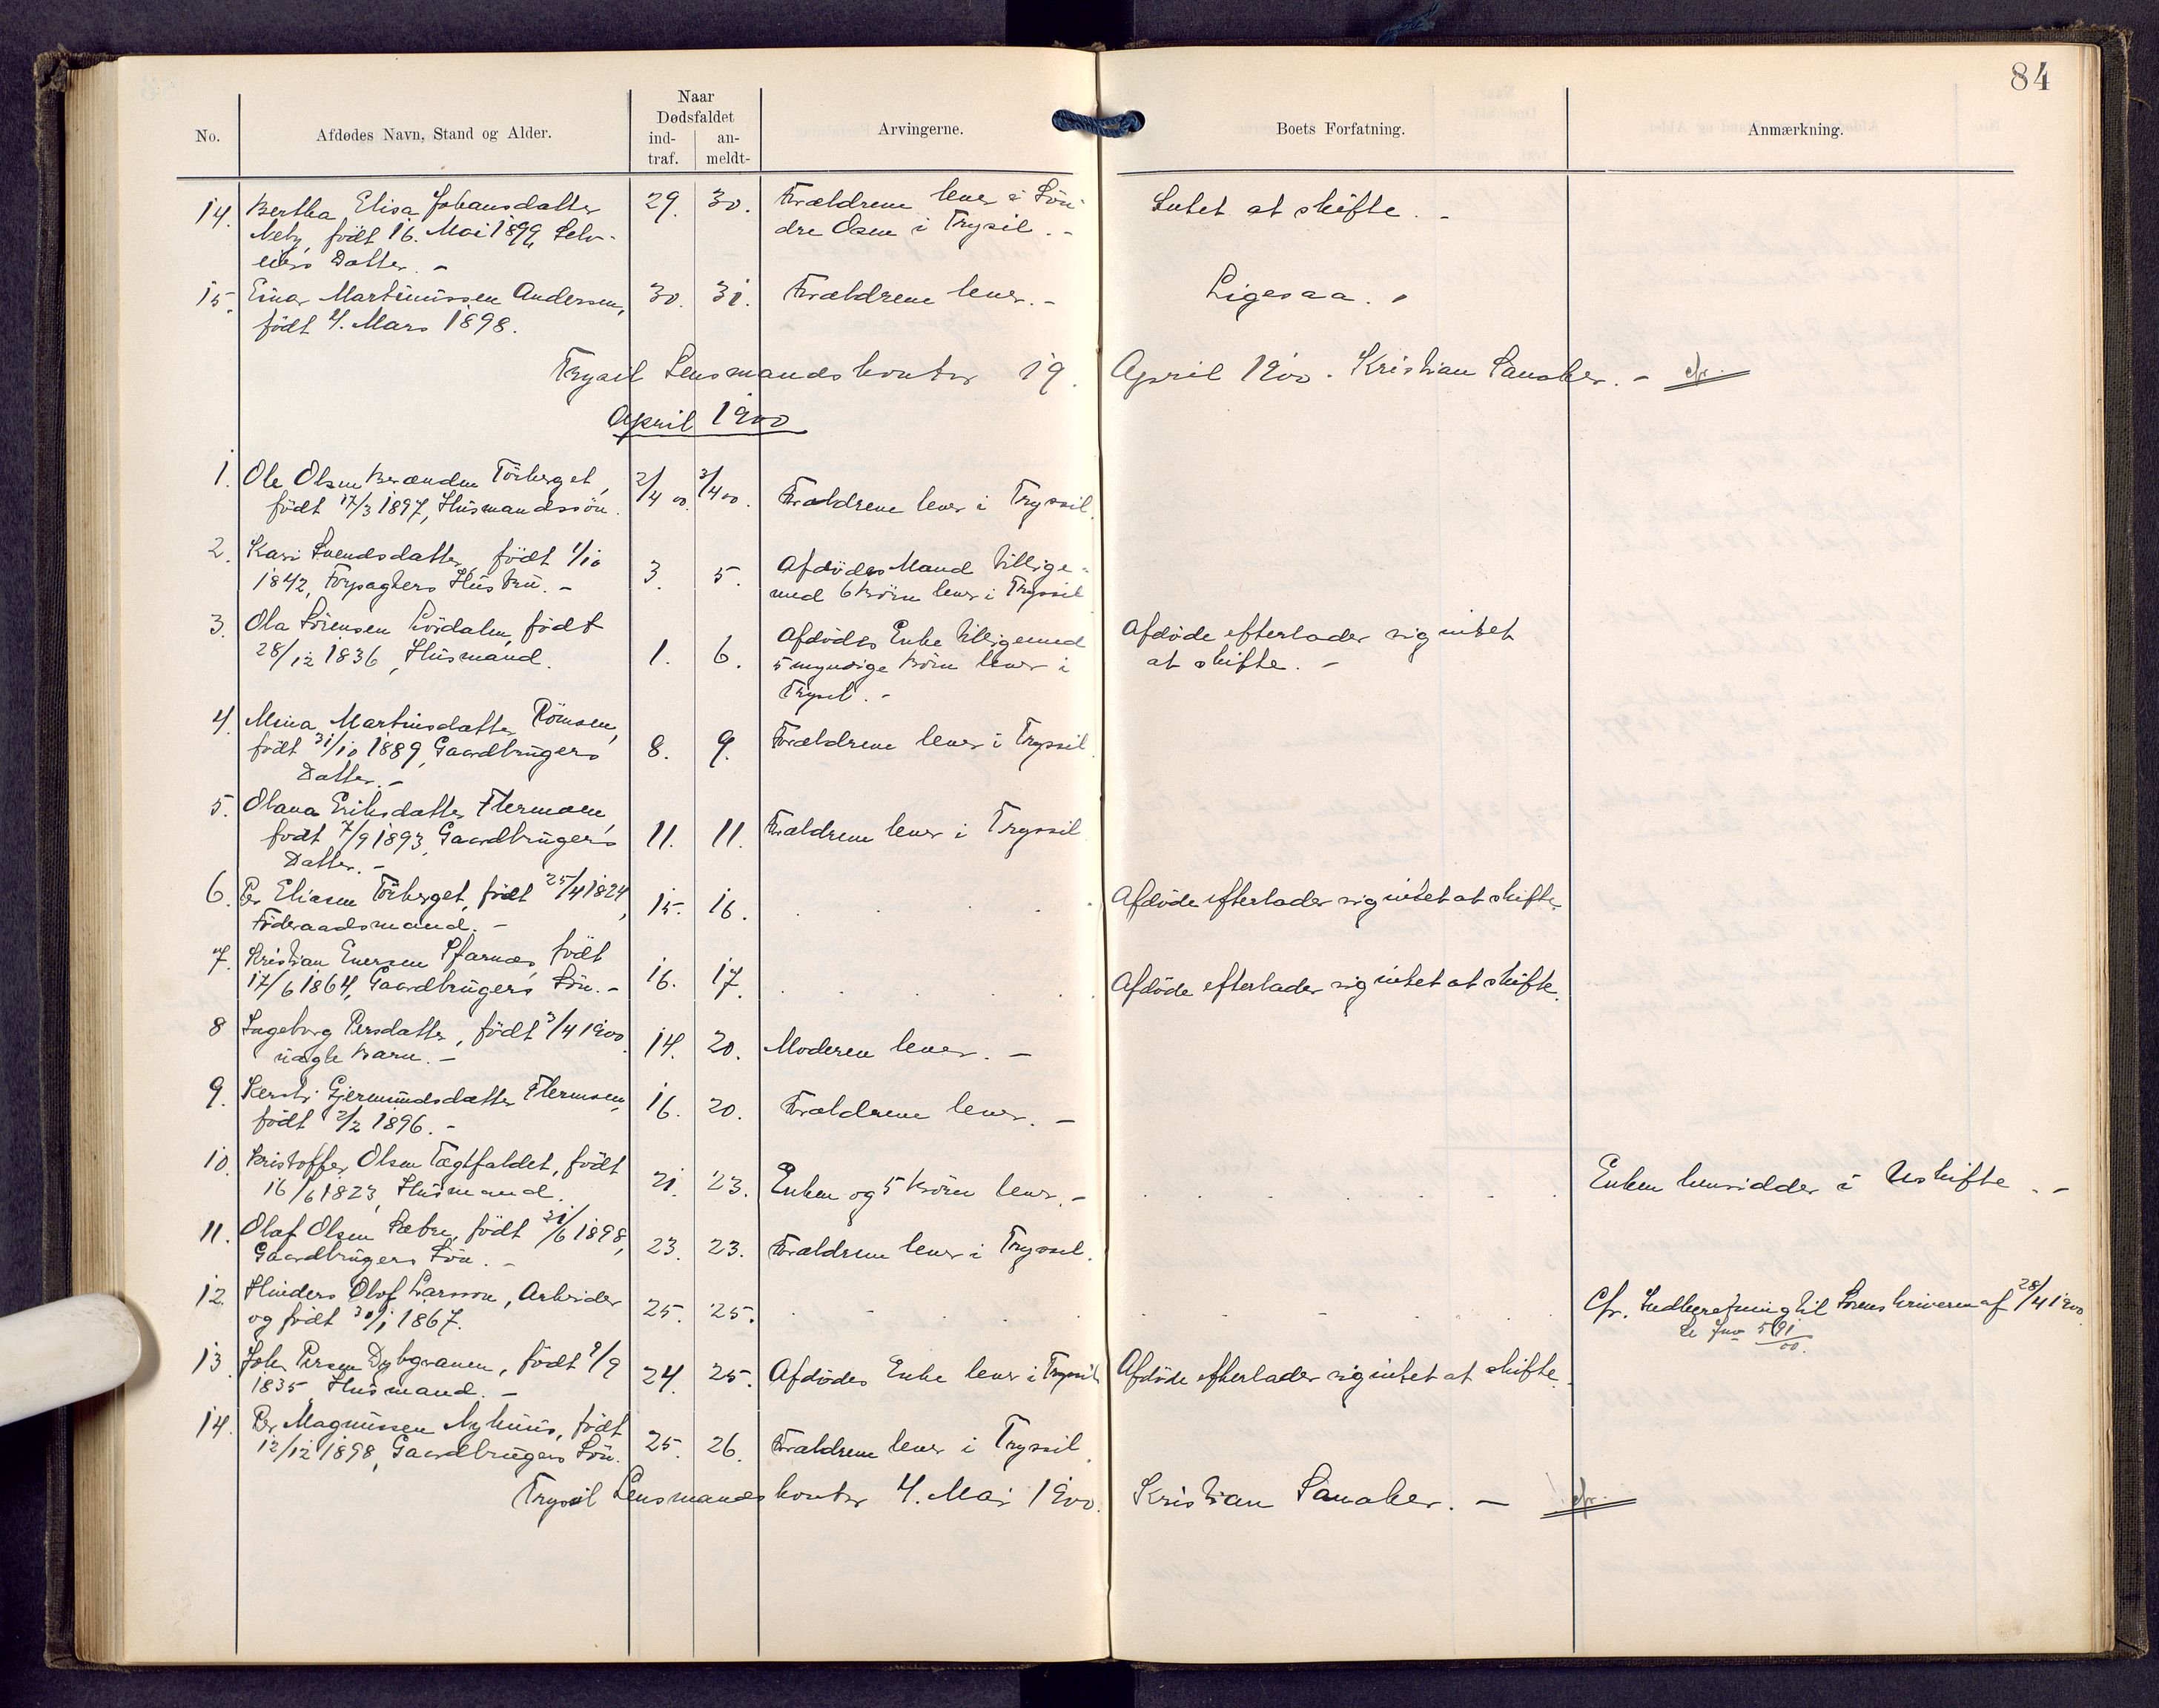 84
No.
Afdødes Navn, Stand og Alder.
Naar
Dødsfaldet
ind-
traf.
an-
meldt-
Arvingerne.
Boets Forfatning.
Anmærkning.
14. Bertha Elisa Johansdatter 29. 30. Forældrene lever i Søn- Intet at skifte. -
Neby, født 16. Mai 1899, Selv- dre Osen i Trysil. -
eiers Datter. -
15. Einar Martinussen Andersen, 30. 31. Forældrene lever. - Ligesaa. -
født 4. Mars 1898.
Trysil Lensmandskontor 19. April 1900. Kristian Sanaker. -
April 1900
1. Ole Olsen Brænden Törberget, 2/4 00. 3/4 00.
født 17/3 1897, Husmandssön. Forældrene lever i Tryssil.
2. Kari Svendsdatter, født 1/10 3. 5. Afdødes Mand tillige-
1842, Forpagters Hustru. - med 6 Börn lever i Tryssil
3. Ola Sörensen Lördalen, født 1. 6. Afdødes Enke tilligemed Afdøde efterlader sig intet
28/12 1836, Husmand. 5 myndige Börn lever i at skifte. -
Trysil. -
4. Mina Martinsdatter Römoen, 8. 9. Forældrene lever i Tryssil
født 31/10 1889, Gaardbrugers
Datter. -
5. Olava Eriksdatter Flermoen, 11. 11. Forældrene lever i Tryssil
født 7/9 1893, Gaardbrugers
Datter. -
6. Per Eliasen Törberget, født 25/4 1824, 15. 16. Afdøde efterlader sig intet at skifte.
Föderaadsmand. -
7. Kristian Enersen födt 16. 17. Afdøde efterlader sig intet at skifte.
17/6 1864, Gaardbrugers Sön. -
8 Ingeborg Persdatter, født 3/4 1900 14. 20. Moderen lever. -
uægte Barn. -
9. Kersti Gjermundsdatter Flermoen, 16. 20. Forældrene lever. -
født 2/2 1896. -
10. Kristoffer Olsen Tægtfaldet, født 21. 23. Enken og 5 Börn lever. - Enken hensidder i Uskifte. -
16/6 1823, Husmand.
11. Olaf Olsen Sæbre, født 21/6 1898, 23. 23. Forældrene lever i Tryssil.
Gaardbrugers Sön. -
12. Olof Larsson, Arbeider 25. 25. Cfr. Indberetning til Sorenskriveren af 28/4 1900
og født 30/1 1867. Se Jno 591/00.
13. Johs Persen Dybgranen, født 9/9 24. 25. Afdødes Enke lever i Tryssil Afdøde efterlader sig intet at skifte.
1835, Husmand. -
14. Per Magnussen Nyhuus, født 25. 26. Forældrene lever i Tryssil.
12/12 1898, Gaardbrugers Sön.
Trysil Lensmandskontor 4. Mai 1900. Kristian Sanaker. -